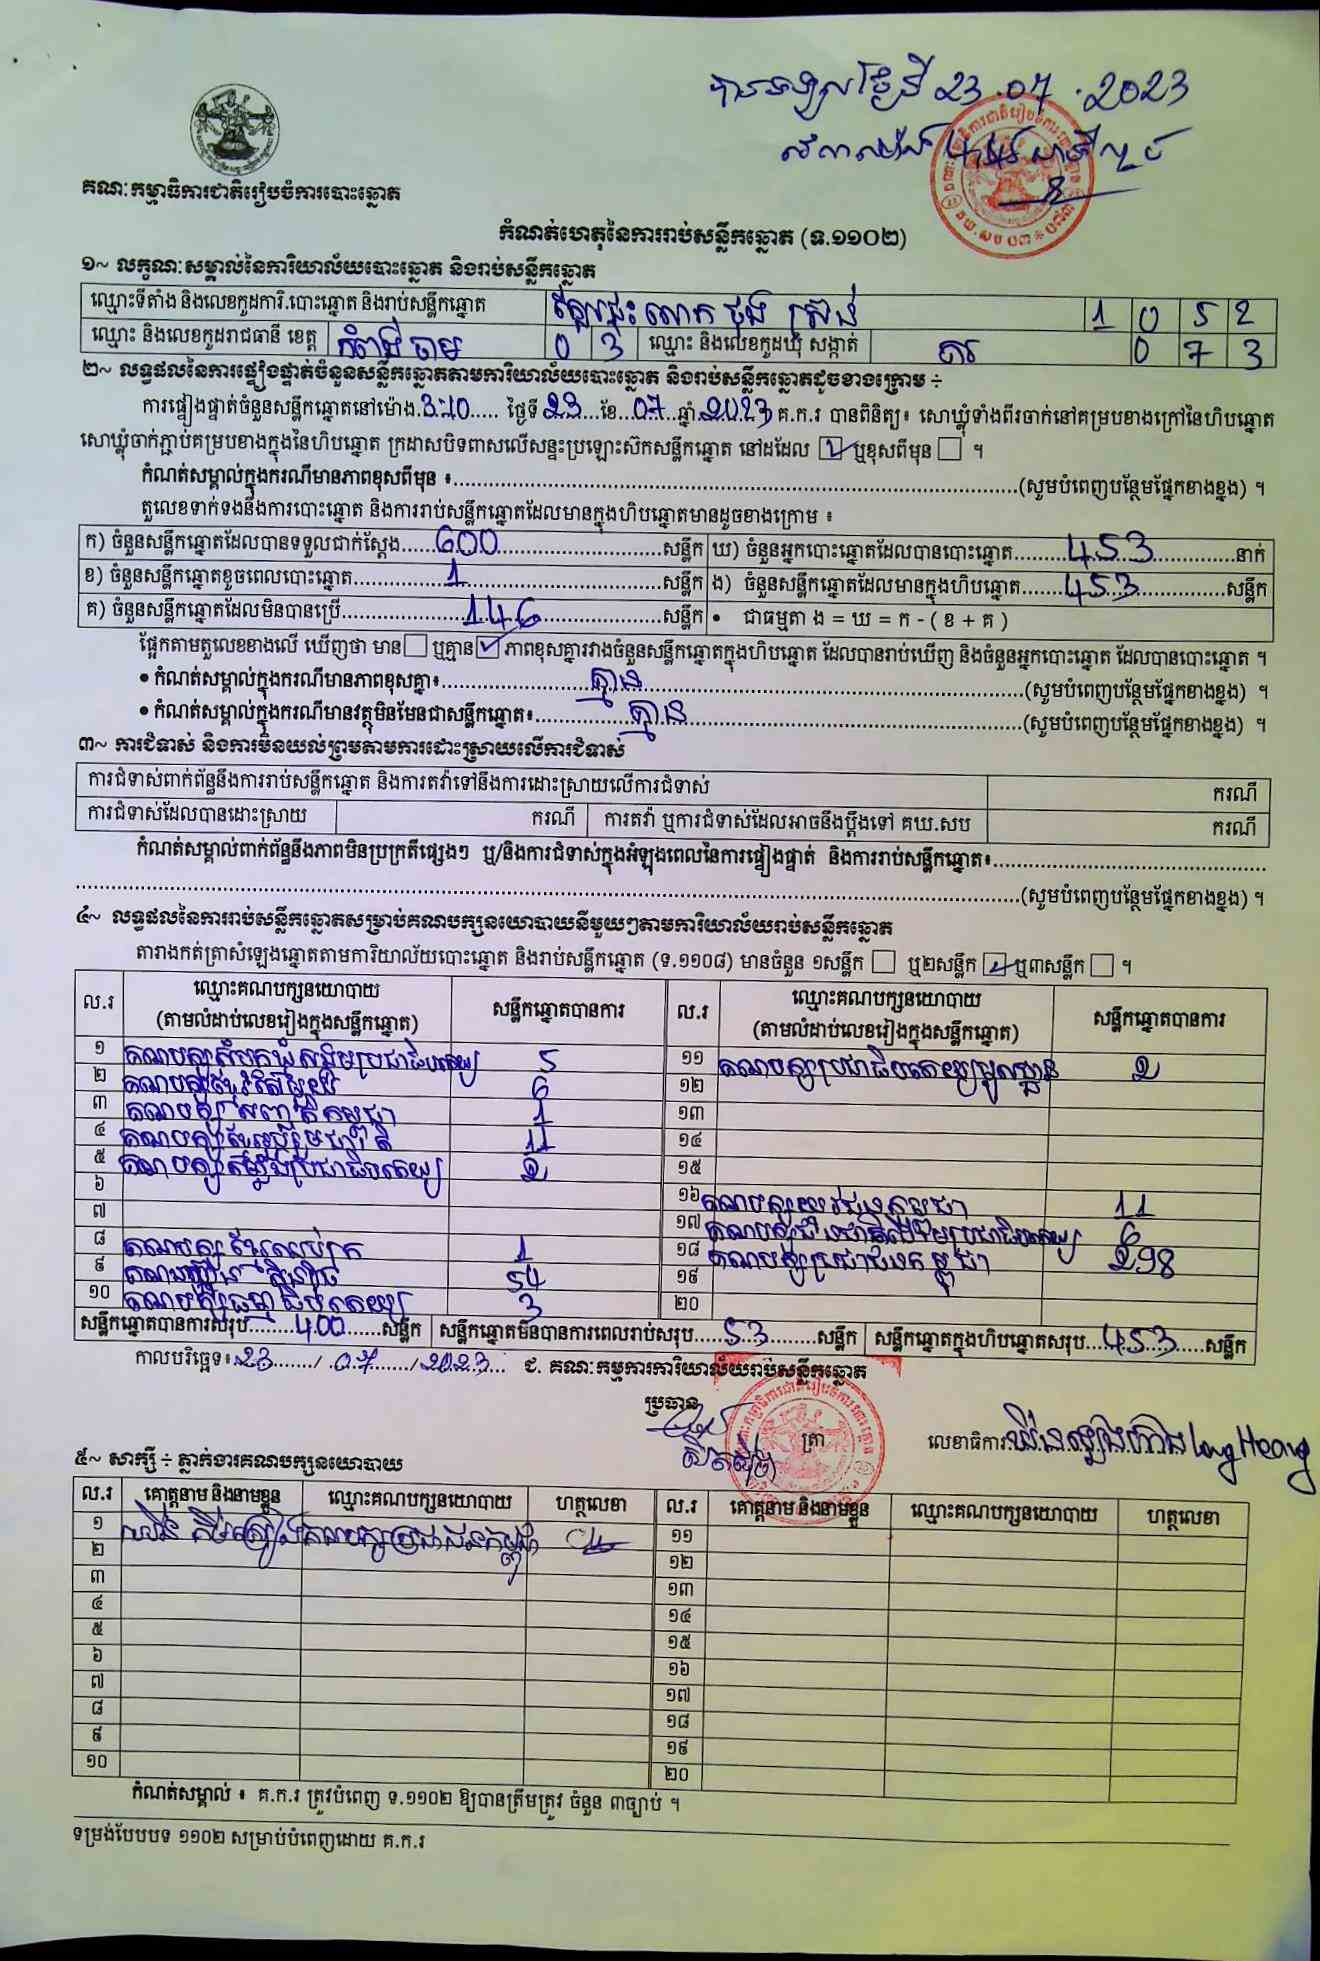 បានទទួលថ្ងៃទី 23.07.2023
គណៈកម្មាធិការជាតិរៀបចំការបោះឆ្នោត
កំណត់ហេតុនៃការរាប់សន្លឹកឆ្នោត (ទ.១១០២)
១~ លក្ខណៈសម្គាល់នៃការិយាល័យបោះឆ្នោត និងរាប់សន្លឹកឆ្នោត
ឈ្មោះទីតាំង និងលេខកូដការិ.បោះឆ្នោត និងរាប់សន្លឹកឆ្នោត ផ្ទះ លោក 1 0 5 2
ឈ្មោះ និងលេខកូដរាជធានី ខេត្ត កំពង់ចាម 0 3 ឈ្មោះ និងលេខកូដឃុំ សង្កាត់ 0 7 3
២~ លទ្ធផលនៃការផ្ទៀងផ្ទាត់ចំនួនសន្លឹកឆ្នោតតាមការិយាល័យបោះឆ្នោត និងរាប់សន្លឹកឆ្នោតដូចខាងក្រោម ÷
ការផ្ទៀងផ្ទាត់ចំនួនសន្លឹកឆ្នោតនៅម៉ោង.3:10..... ថ្ងៃទី 23...ខែ...07...ឆ្នាំ.2023 គ.ក.រ បានពិនិត្យ៖ សោឃ្លុំទាំងពីរចាក់នៅគម្របខាងក្រៅនៃហិបឆ្នោត
សោឃ្លុំចាក់ភ្ជាប់គម្របខាងក្នុងនៃហិបឆ្នោត ក្រដាសបិទពាសលើសន្ទះប្រឡោះស៊កសន្លឹកឆ្នោត នៅដដែល ☑ ឬខុសពីមុន ☐ ។
កំណត់សម្គាល់ក្នុងករណីមានភាពខុសពីមុន ៖..........(សូមបំពេញបន្ថែមផ្នែកខាងខ្នង) ។
តួលេខទាក់ទងនឹងការបោះឆ្នោត និងការរាប់សន្លឹកឆ្នោតដែលមានក្នុងហិបឆ្នោតមានដូចខាងក្រោម ៖
ក) ចំនួនសន្លឹកឆ្នោតដែលបានទទួលជាក់ស្តែង......600......សន្លឹក ឃ) ចំនួនអ្នកបោះឆ្នោតដែលបានបោះឆ្នោត......453......នាក់
ខ) ចំនួនសន្លឹកឆ្នោតខូចពេលបោះឆ្នោត......1......សន្លឹក ង) ចំនួនសន្លឹកឆ្នោតដែលមានក្នុងហិបឆ្នោត......453......សន្លឹក
គ) ចំនួនសន្លឹកឆ្នោតដែលមិនបានប្រើ......146......សន្លឹក • ជាធម្មតា ង = ឃ = ក - ( ខ + គ )
ផ្អែកតាមតួលេខខាងលើ ឃើញថា មាន ☐ ឬគ្មាន ☑ ភាពខុសគ្នារវាងចំនួនសន្លឹកឆ្នោតក្នុងហិបឆ្នោត ដែលបានរាប់ឃើញ និងចំនួនអ្នកបោះឆ្នោត ដែលបានបោះឆ្នោត ។
• កំណត់សម្គាល់ក្នុងករណីមានភាពខុសគ្នា៖......គ្មាន......(សូមបំពេញបន្ថែមផ្នែកខាងខ្នង) ។
• កំណត់សម្គាល់ក្នុងករណីមានវត្ថុមិនមែនជាសន្លឹកឆ្នោត៖......គ្មាន......(សូមបំពេញបន្ថែមផ្នែកខាងខ្នង) ។
៣~ ការជំទាស់ និងការមិនយល់ព្រមតាមការដោះស្រាយលើការជំទាស់
ការជំទាស់ពាក់ព័ន្ធនឹងការរាប់សន្លឹកឆ្នោត និងការតវ៉ាទៅនឹងការដោះស្រាយលើការជំទាស់ ករណី
ការជំទាស់ដែលបានដោះស្រាយ ករណី ការតវ៉ា ឬការជំទាស់ដែលអាចនឹងប្តឹងទៅ គឃ.សប ករណី
កំណត់សម្គាល់ពាក់ព័ន្ធនឹងភាពមិនប្រក្រតីផ្សេងៗ ឬ/និងការជំទាស់ក្នុងអំឡុងពេលនៃការផ្ទៀងផ្ទាត់ និងការរាប់សន្លឹកឆ្នោត៖..........
..........(សូមបំពេញបន្ថែមផ្នែកខាងខ្នង) ។
៤~ លទ្ធផលនៃការរាប់សន្លឹកឆ្នោតសម្រាប់គណបក្សនយោបាយនីមួយៗតាមការិយាល័យរាប់សន្លឹកឆ្នោត
តារាងកត់ត្រាសំឡេងឆ្នោតតាមការិយាល័យបោះឆ្នោត និងរាប់សន្លឹកឆ្នោត (ទ.១១០៨) មានចំនួន ១សន្លឹក ☐ ឬ២សន្លឹក ☑ ឬ៣សន្លឹក ☐ ។
ល.រ ឈ្មោះគណបក្សនយោបាយ (តាមលំដាប់លេខរៀងក្នុងសន្លឹកឆ្នោត) សន្លឹកឆ្នោតបានការ ល.រ ឈ្មោះគណបក្សនយោបាយ (តាមលំដាប់លេខរៀងក្នុងសន្លឹកឆ្នោត) សន្លឹកឆ្នោតបានការ
១ គណបក្សសំបុកឃ្មុំសង្គមប្រជាធិបតេយ្យ 5 ១១ គណបក្សប្រជាធិបតេយ្យមូលដ្ឋាន 2
២ 6 ១២
៣ គណបក្ស កម្ពុជា 1 ១៣
៤ គណបក្សខ្មែររួបរួមជាតិ 11 ១៤
៥ គណបក្សកម្លាំងប្រជាធិបតេយ្យ 2 ១៥
៦ ១៦ គណបក្សយុវជនកម្ពុជា 11
៧ ១៧ 6
៨ គណបក្សខ្មែរឈប់ក្រ 1 ១៨ គណបក្សប្រជាជនកម្ពុជា 298
៩ គណបក្សហ៊្វុនស៊ិនប៉ិច 54 ១៩
១០ គណបក្សធម្មាធិបតេយ្យ 3 ២០
សន្លឹកឆ្នោតបានការសរុប......400......សន្លឹក សន្លឹកឆ្នោតមិនបានការពេលរាប់សរុប.....53......សន្លឹក សន្លឹកឆ្នោតក្នុងហិបឆ្នោតសរុប...453...សន្លឹក
កាលបរិច្ឆេទ៖ 23....../ .07....../ 2023... ជ. គណៈកម្មការការិយាល័យរាប់សន្លឹកឆ្នោត
ប្រធាន
ត្រា
លេខាធិការ Long Heang
៥~ សាក្សី ÷ ភ្នាក់ងារគណបក្សនយោបាយ
ល.រ គោត្តនាម និងនាមខ្លួន ឈ្មោះគណបក្សនយោបាយ ហត្ថលេខា ល.រ គោត្តនាម និងនាមខ្លួន ឈ្មោះគណបក្សនយោបាយ ហត្ថលេខា
១ គណបក្សប្រជាជនកម្ពុជា ១១
២ ១២
៣ ១៣
៤ ១៤
៥ ១៥
៦ ១៦
៧ ១៧
៨ ១៨
៩ ១៩
១០ ២០
កំណត់សម្គាល់ ៖ គ.ក.រ ត្រូវបំពេញ ទ.១១០២ ឱ្យបានត្រឹមត្រូវ ចំនួន ៣ច្បាប់ ។
ទម្រង់បែបបទ ១១០២ សម្រាប់បំពេញដោយ គ.ក.រ